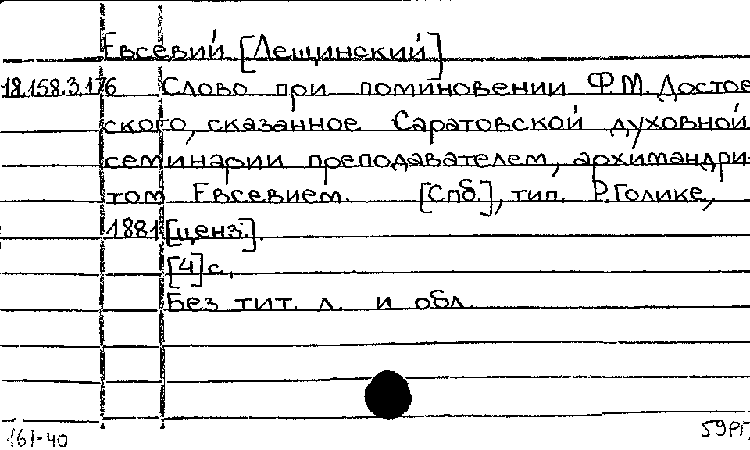 Евсевий [Лещинский]
18.158.3.176 Слово при поминовении Ф.М. Достоев
ского, сказанное Саратовской духовной
семинарии преподавателем, архимандри-
том Евсевием. [Спб.], тип. Р.Голике,
1881 [ценз.].
[4] с.
Без тит. л. и обл.
161-40 59РГ